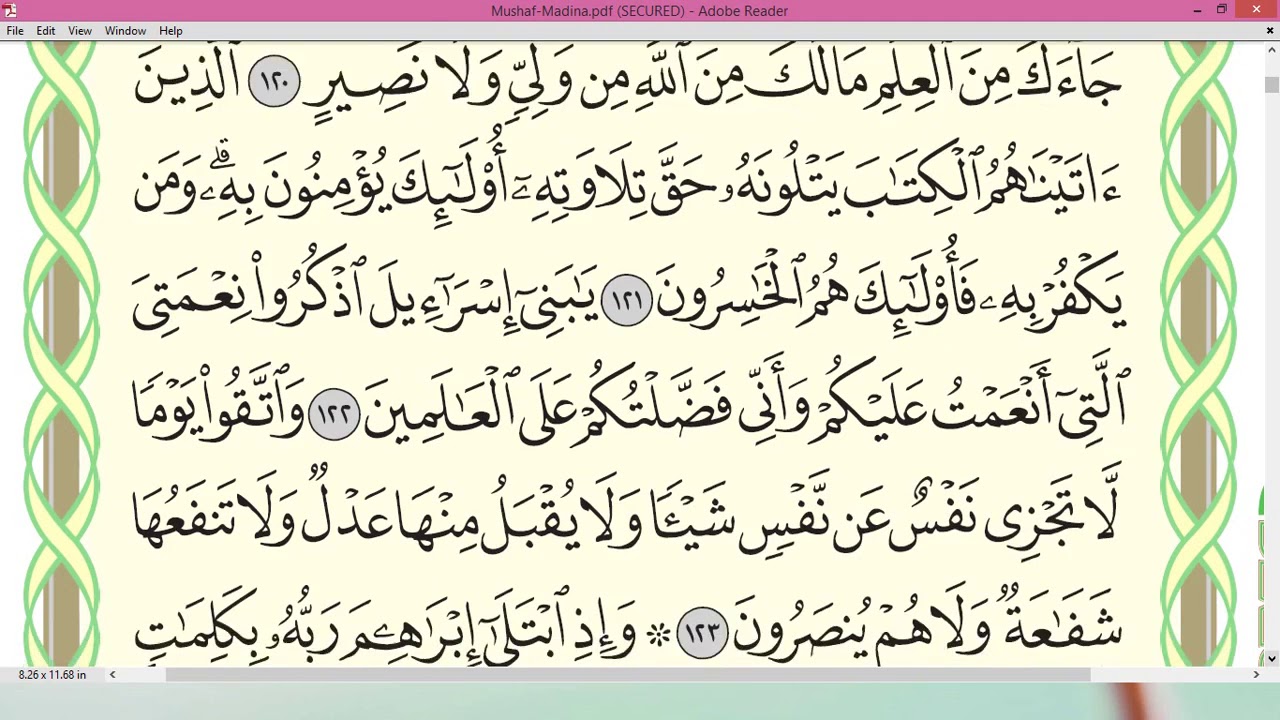 Mushaf-Madina.pdf (SECURED) - Adobe Reader
File Edit View Window Help
جَآءَكَ مِنَ ٱلْعِلْمِ مَا لَكَ مِنَ ٱللَّهِ مِن وَلِيٍّ وَلَا نَصِيرٍ ١٢٠ ٱلَّذِينَ
ءَاتَيْنَٰهُمُ ٱلْكِتَٰبَ يَتْلُونَهُۥ حَقَّ تِلَاوَتِهِۦٓ أُو۟لَٰٓئِكَ يُؤْمِنُونَ بِهِۦۗ وَمَن
يَكْفُرْ بِهِۦ فَأُو۟لَٰٓئِكَ هُمُ ٱلْخَٰسِرُونَ ١٢١ يَٰبَنِىٓ إِسْرَٰٓءِيلَ ٱذْكُرُوا۟ نِعْمَتِىَ
ٱلَّتِىٓ أَنْعَمْتُ عَلَيْكُمْ وَأَنِّى فَضَّلْتُكُمْ عَلَى ٱلْعَٰلَمِينَ ١٢٢ وَٱتَّقُوا۟ يَوْمًا
لَّا تَجْزِى نَفْسٌ عَن نَّفْسٍ شَيْـًٔا وَلَا يُقْبَلُ مِنْهَا عَدْلٌ وَلَا تَنفَعُهَا
شَفَٰعَةٌ وَلَا هُمْ يُنصَرُونَ ١٢٣ ۞ وَإِذِ ٱبْتَلَىٰٓ إِبْرَٰهِۦمَ رَبُّهُۥ بِكَلِمَٰتٍ
8.26 x 11.68 in